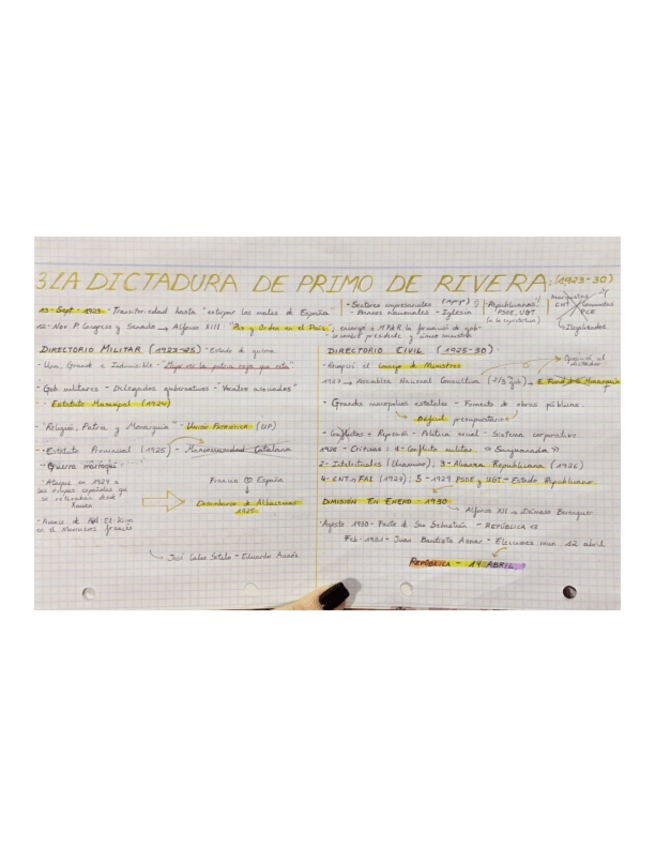 3. LA DICTADURA DE PRIMO DE RIVERA: (1923-30)
13-Sept-1923 - Transitoriedad hasta "extirpar los males de España"
- Sectores empresariales
- Bases nacionales - Iglesia
- Republicanos
PSOE, UGT
CNT
Comunistas
PCE
Ilegalizados
12-Nov P. Congreso y Senado → Alfonso XIII "Paz y Orden en el País", encargó a MPdR la formación de gob-
DIRECTORIO MILITAR (1923-25) - Estado de guerra
- Una, Grande e Indivisible - "Mejor la patria roja que rota"
- Gob militares - Delegados gubernativos - "Vocales asociados"
- Estatuto Municipal (1924)
- "Religión, Patria y Monarquía" - Unión Patriótica (UP)
- Estatuto Provincial (1925) - Mancomunidad Catalana
- Guerra marroquí:
- Ataque en 1924 a
las tropas españolas que
se retiraban desde
Xauen
- Avance de Abd-El-Krim
en el Marruecos francés
Francia España
Desembarco de Alhucemas
1925
José Calvo Sotelo - Eduardo Aunós
DIRECTORIO CIVIL (1925-30):
- Reapció el Consejo de Ministros
Oposición al
dictador
1927 → Asamblea Nacional Consultiva (2/3 gob) → E. Fund. de Monarquía
- Grandes monopolios estatales - Fomento de obras públicas.
Déficit presupuestario
- Conflictos + Represión - Política social - Sistema corporativo.
1926 - Críticas: 1- Conflicto militar. "Sanjuanada"
2- Intelectuales (Unamuno), 3- Alianza Republicana (1926)
4- CNT → FAI (1927), 5- 1929 PSOE y UGT - Estado Republicano
DIMISIÓN EN ENERO - 1930
Alfonso XIII → Dámaso Berenguer
- Agosto 1930 - Pacto de San Sebastián - REPÚBLICA
Feb-1931 - Juan Bautista Aznar - Elecciones mun. 12 abril
REPÚBLICA - 14 ABRIL